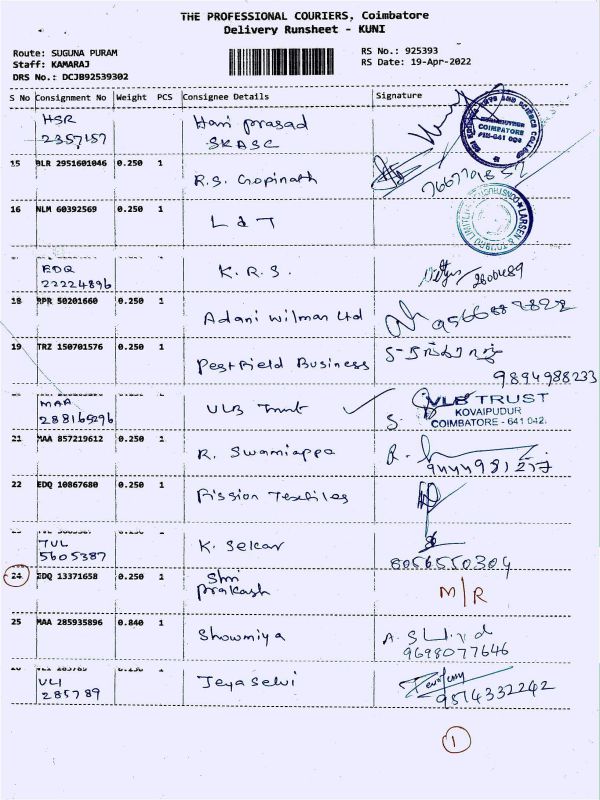 THE PROFESSIONAL COURIERS, Coimbatore
Delivery Runsheet - KUNI
Route: SUGUNA PURAM
Staff: KAMARAJ
DRS No.: DCJB92539302
RS No.: 925393
RS Date: 19-Apr-2022
S No Consignment No Weight PCS Consignee Details Signature
HSR
2357157
Hari Prasad
SKASC
COIMBATORE
15 BLR 2951601046 0.250 1 R.S. Gopinath
16 NLM 60392569 0.250 1 L & T
LARSEN & TOUBRO LIMITED
EDQ
22224896
K.R.S.
2606489
18 RPR 50201660 0.250 1 Adani Wilmar Ltd
19 TRZ 150701576 0.250 1 Pestfield Business
9894988233
MAA
288165296
VLB Trust
S.
VLB TRUST
KOVAIPUDUR
COIMBATORE - 641 042.
21 MAA 857219612 0.250 1 R. Swamiappa
22 EDQ 10867680 0.250 1 Fission Textiles
TUL
5605387
K. Sekar
8056550304
24 EDQ 13371658 0.250 1 Shri
Prakash
M/R
25 MAA 285935896 0.840 1 Showmiya
9698077646
VLI
285789
Jeyaselvi
9514332242
1